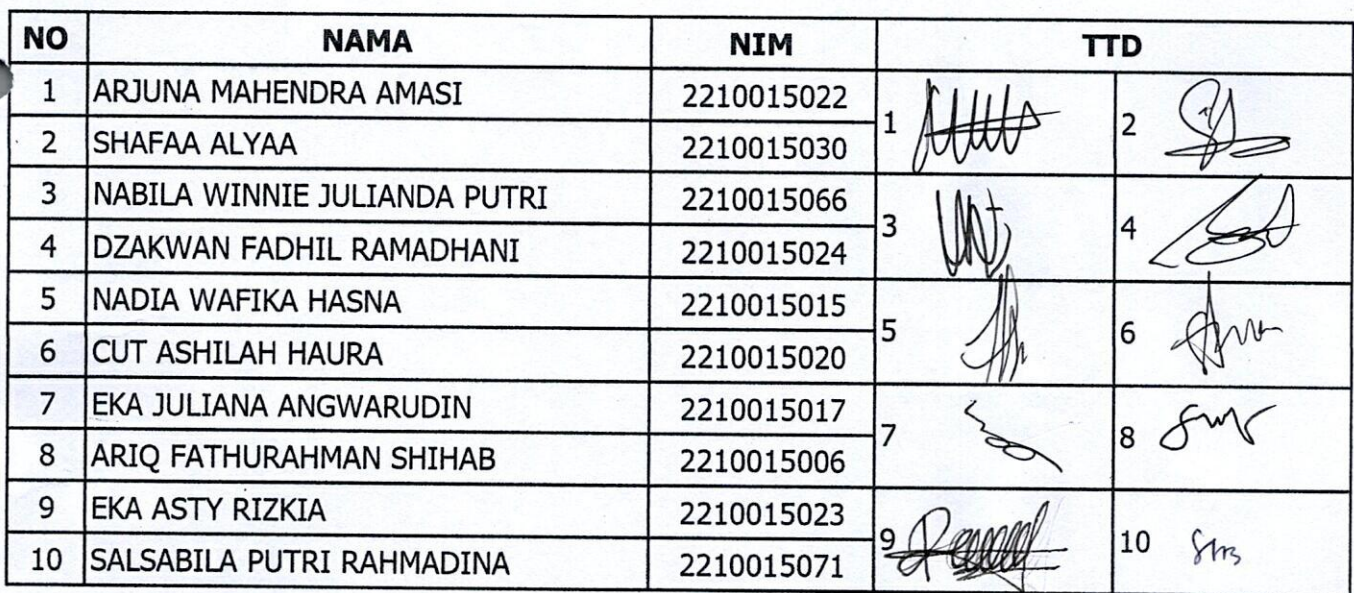 NO NAMA NIM TTD
1 ARJUNA MAHENDRA AMASI 2210015022 1 2
2 SHAFAA ALYAA 2210015030
3 NABILA WINNIE JULIANDA PUTRI 2210015066 3 4
4 DZAKWAN FADHIL RAMADHANI 2210015024
5 NADIA WAFIKA HASNA 2210015015 5 6
6 CUT ASHILAH HAURA 2210015020
7 EKA JULIANA ANGWARUDIN 2210015017 7 8
8 ARIQ FATHURAHMAN SHIHAB 2210015006
9 EKA ASTY RIZKIA 2210015023 9 10
10 SALSABILA PUTRI RAHMADINA 2210015071